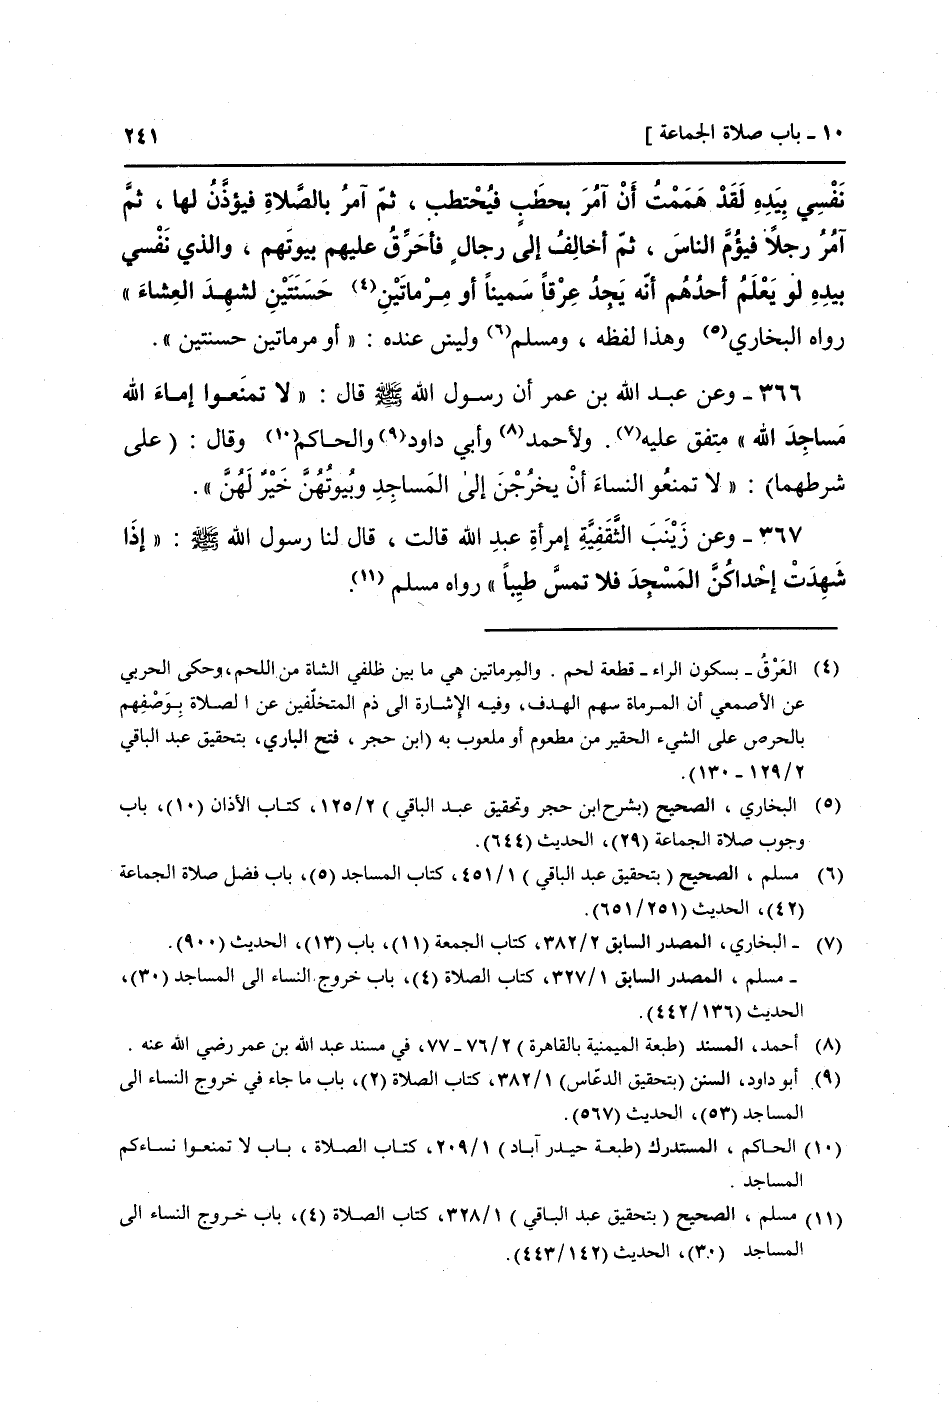 ١٠ ـ باب صلاة الجماعة ]
٢٤١
نَفْسِي بِيَدِهِ لَقَدْ هَمَمْتُ أَنْ آمُرَ بحطَبٍ فيُحْتطبِ ، ثمّ آمرُ بالصَّلاةِ فيؤذَّنُ لها ، ثمَّ
آمُرُ رجلاً فيؤُمَّ الناسَ ، ثمّ أخالِفُ إلى رجالٍ فأحَرِّقُ عليهم بيوتَهم ، والذي نَفْسي
بيدِهِ لو يَعْلَمُ أحدُهُم أنّه يَجِدُ عِرْقاً سَميناً أو مِـرْماتَيْنِ(٤) حَسَنَتَيْنِ لشهِدَ العِشاءَ »
رواه البخاري(٥) وهذا لفظه ، ومسلم(٦) وليس عنده : « أو مرماتين حسنتين ».
٣٦٦ ـ وعن عبـد الله بن عمر أن رسـول الله ﷺ قال : « لا تمنَعـوا إماءَ الله
مَساجِدَ الله » متفق عليه(٧). ولأحمد(٨) وأبي داود(٩) والحـاكم(١٠) وقال : ( على
شرطهما) : « لا تمنعُو النساءَ أنْ يخرُجْنَ إلىٰ المَساجِدِ وبُيوتُهُنَّ خَيْرٌ لَهُنَّ ».
٣٦٧ ـ وعن زَيْنَبَ الثَّقَفِيَّةِ إمرأةِ عبدِ الله قالت ، قال لنا رسول الله ﷺ : « إذَا
شَهِدَتْ إحْداكُنَّ المَسْجِدَ فلا تمسَّ طيباً » رواه مسلم (١١).
(٤) العَرْقُ ـ بسكون الراء ـ قطعة لحم . والمِرماتين هي ما بين ظلفي الشاة من اللحم،وحكى الحربي
عن الأصمعي أن المـرماة سهم الهـدف، وفيـه الإشـارة الى ذم المتخلّفين عن ا لصـلاة بِـوَصْفِهم
بالحرص على الشيء الحقير من مطعوم أو ملعوب به (ابن حجر ، فتح الباري، بتحقيق عبد الباقي
٢/ ١٢٩ ـ ١٣٠).
(٥) البخاري ، الصحيح (بشرح ابن حجر وتحقيق عبـد الباقي ) ٢/ ١٢٥، كتـاب الأذان (١٠)، باب
وجوب صلاة الجماعة (٢٩)، الحديث (٦٤٤).
(٦) مسلم ، الصحيح ( بتحقيق عبد الباقي ) ١/ ٤٥١، كتاب المساجد (٥)، باب فضل صلاة الجماعة
(٤٢)، الحديث (٢٥١/ ٦٥١).
(٧) ـ البخاري، المصدر السابق ٢/ ٣٨٢، كتاب الجمعة (١١)، باب (١٣)، الحديث (٩٠٠).
ـ مسلم ، المصدر السابق ١/ ٣٢٧، كتاب الصلاة (٤)، باب خروج النساء الى المساجد (٣٠)،
الحديث (١٣٦/ ٤٤٢).
(٨) أحمد، المسند (طبعة الميمنية بالقاهرة ) ٢/ ٧٦ ـ ٧٧، في مسند عبد الله بن عمر رضي الله عنه .
(٩) أبو داود، السنن (بتحقيق الدعّاس) ١/ ٣٨٢، كتاب الصلاة (٢)، باب ما جاء في خروج النساء الى
المساجد (٥٣)، الحديث (٥٦٧).
(١٠) الحـاكم ، المستدرك (طبعـة حيدر آبـاد ) ١/ ٢٠٩، كتـاب الصـلاة ، بـاب لا تمنعـوا نسـاءكم
المساجد .
(١١) مسلم ، الصحيح ( بتحقيق عبد البـاقي ) ١/ ٣٢٨، كتاب الصـلاة (٤)، باب خـروج النساء الى
المساجد (٣٠)، الحديث (١٤٢/ ٤٤٣).